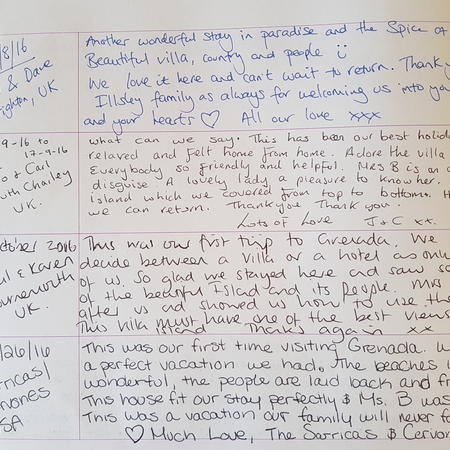 /8/16
& Dave
ighton, UK
Another wonderful stay in paradise and the Spice of
Beautiful villa, country and people
We love it here and can't wait to return. Thank y
Illsley family as always for welcoming us into yo
and your hearts ♡ All our love xxx
9-16 to
17-9-16
o & Carl
uth Chailey
UK.
what can we say. This has been our best holid
relaxed and felt home from home. Adore the villa
Everybody so friendly and helpful. Mrs B is an a
disguise. A lovely lady a pleasure to know her.
Island which we covered from top to bottom. H
we can return. Thankyou Thank you.
Lots of Love J & C xx.
ctober 2016
ul & Karen
ournemouth
UK.
This was our first trip to Grenada. We
decide between a villa or a hotel as only
of us. So glad we stayed here and saw so
of the beautiful Island and its people. Mrs
after us and showed us how to use the
This villa must have one of the best views
Island Thanks again xx
/26/16
rricas/
vones
SA
This was our first time visiting Grenada. W
a perfect vacation we had. The beaches w
wonderful, the people are laid back and fr
This house fit our stay perfectly & Ms. B was
This was a vacation our family will never fo
♡ Much Love, The Sarricas & Cervon